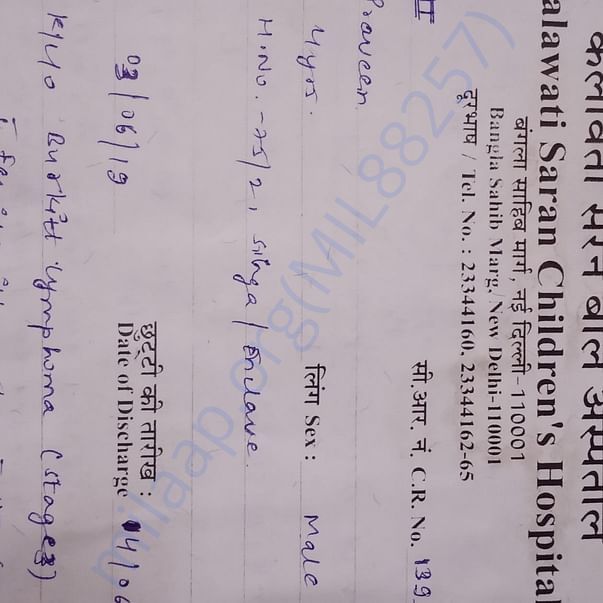 कलावती सरन बाल अस्पताल
alawati Saran Children's Hospital
बंगला साहिब मार्ग, नई दिल्ली-110001
Bangla Sahib Marg, New Delhi-110001
दूरभाष / Tel. No. : 23344160, 23344162-65
II सी.आर. नं. C.R. No. 139
Praveen
4yrs. लिंग Sex : Male
H.No. -75/2, Enclave
03/06/19 छुट्टी की तारीख : 14/06
Date of Discharge
K/4/0 Burkitt lymphoma (stage 3)
milaap.org(MIL88257)